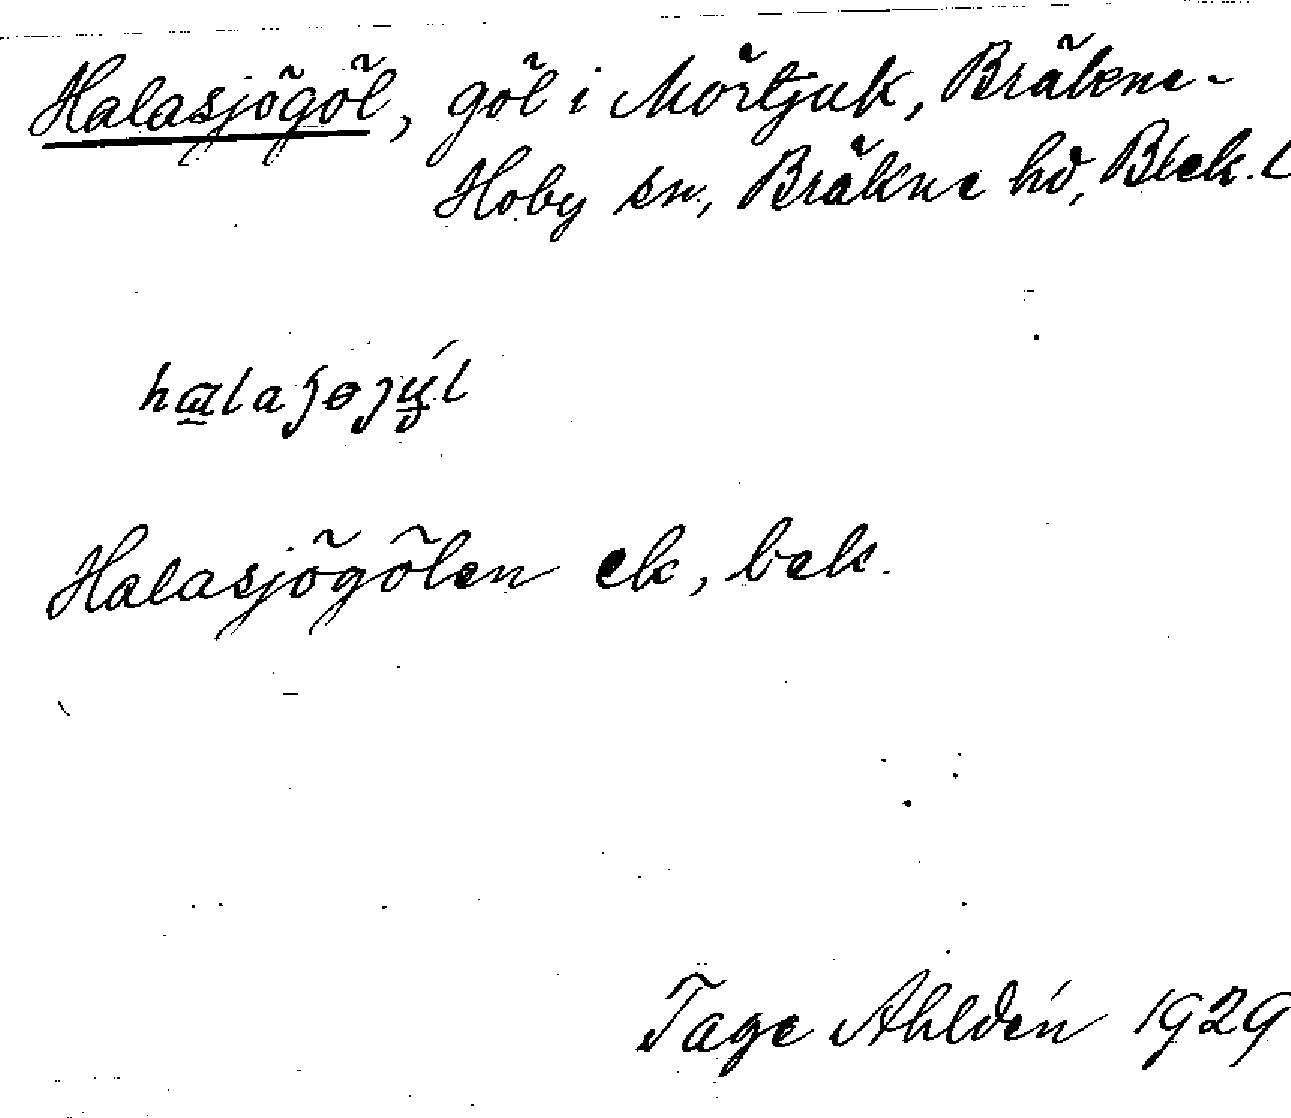 Halasjögöl, göl i Mörtjuk, Bräkne-
Hoby sn, Bräkne hd, Blek. l
Halasjögölen ek, bek.
Tage Ahldén 1929